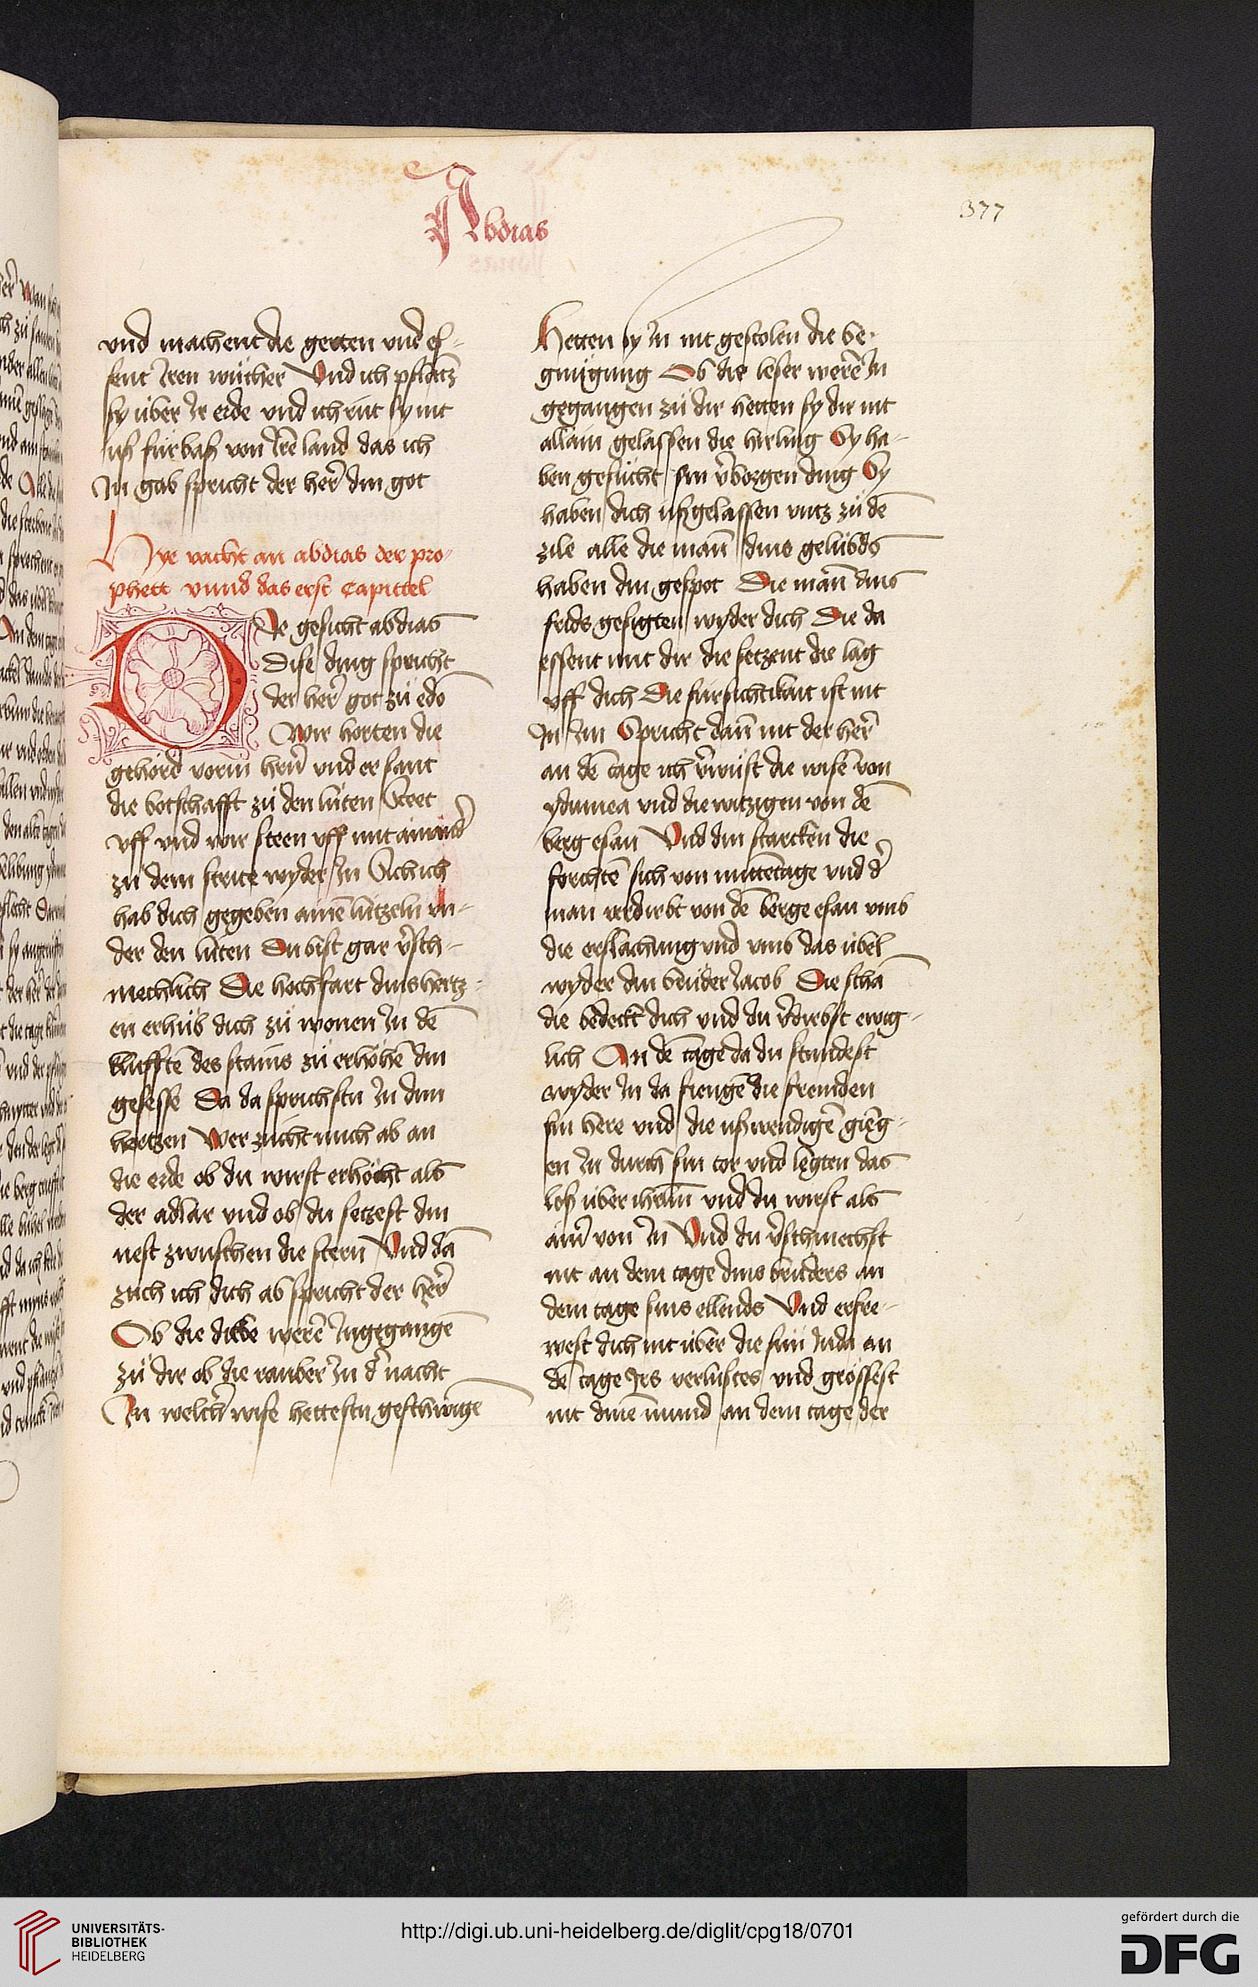 Abdias
377
vnd machent die gerten vnd es-
sent iren wůcher Vnd ich pflātz
sy über ir erde vnd ich rüt sy nit
uß fürbaß von irē land das ich
in gab spricht der her̄ din got
Hye vacht an abdias der pro-
phett vnnd das erst Capittel
Die gesicht abdias
Dise ding spricht
der her̄ got zů edō
Wir horten die
gehörd vorm herrn̄ vnd er sant
die botschafft zů den lüten Steet
vff vnd wir steen vff mit ainand̄
zů dem strite wyder in Sich ich
hab dich gegeben ainē lützeln vn-
der den lüten Du bist gar v̄sch-
mechlich Die hochfart dins hertz-
en erhůb dich zů wonen in dē
klufftē des stains zů erhöhē din
gesesse Da da sprichstu in dim
hertzen Wer zücht mich ab an
die erde ob du wirst erhöcht als
der adlār vnd ob du setzest din
nest zwüschen die stern Vnd dā
züch ich dich ab spricht der her̄
Ob die diebe werē ingegangē
zů dir ob die rauber in d̄ nacht
In welch̄ wise hettestu geschwigē
Hetten sy in nit gestolen die be-
gnügung Ob die leser werē in
gegangen zů dir hetten sy dir nit
allain gelassen die hirling Sy ha-
ben gesůcht sin v̄borgen ding Sy
haben dich ußgelassen vntz zů dē
zile alle die mañ dins gelübds
haben din gespot Die mañ dins
frids gesigten wyder dich Die da
essent mit dir die setzent die lag
vff dich Die fürsichtikait ist nit
in im Spricht dañ nit der her̄
an dē tage ich v̄wüst die wisē von
ydumea vnd die witzigen von dē
berg esau Vnd din starcken die
forchtē sich von mittētage vnd d̄
man verdirbt von dē berge esau vmb
die erslachung vnd vmb das übel
wyder din brůder Jacob Die schā
die bedeckt dich vnd du v̄dirbst ewig-
lich An dē tage da du stundest
wyder in da fiengē die fremden
sin here vnd die ußwendigē gieng-
en in durch sin tor vnd legten das
loß über ihrlm̄ vnd du wirst als
ainr̄ von in Vnd du v̄schmechst
nit an dem tage dins brůders an
dem tage sins ellends Vnd erfre-
west dich nit über die sün Juda an
dē tage irs verlustes vnd grössest
nit dinē mund an dem tage der
UNIVERSITÄTS-
BIBLIOTHEK
HEIDELBERG
http://digi.ub.uni-heidelberg.de/diglit/cpg18/0701
gefördert durch die
DFG